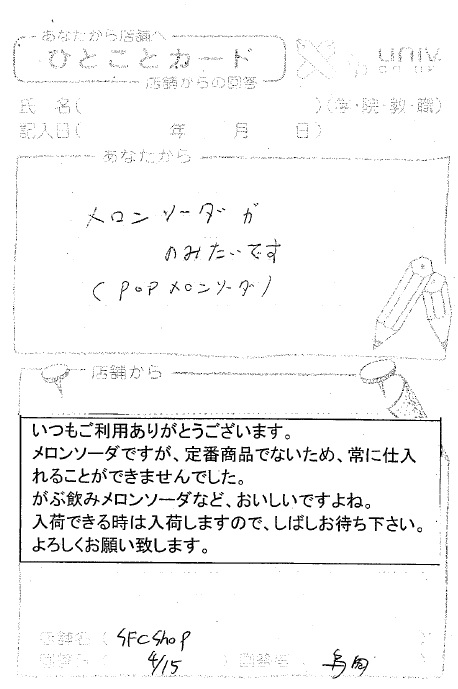 あなたから店舗へ
ひとことカード
店舗からの回答
氏 名( )(学・院・教・職)
記入日( 年 月 日)
あなたから
メロンソーダが
のみたいです
(POPメロンソーダ)
店舗から
いつもご利用ありがとうございます。
メロンソーダですが、定番商品でないため、常に仕入
れることができませんでした。
がぶ飲みメロンソーダなど、おいしいですよね。
入荷できる時は入荷しますので、しばしお待ち下さい。
よろしくお願い致します。
店舗名( SFC Shop )
4/15